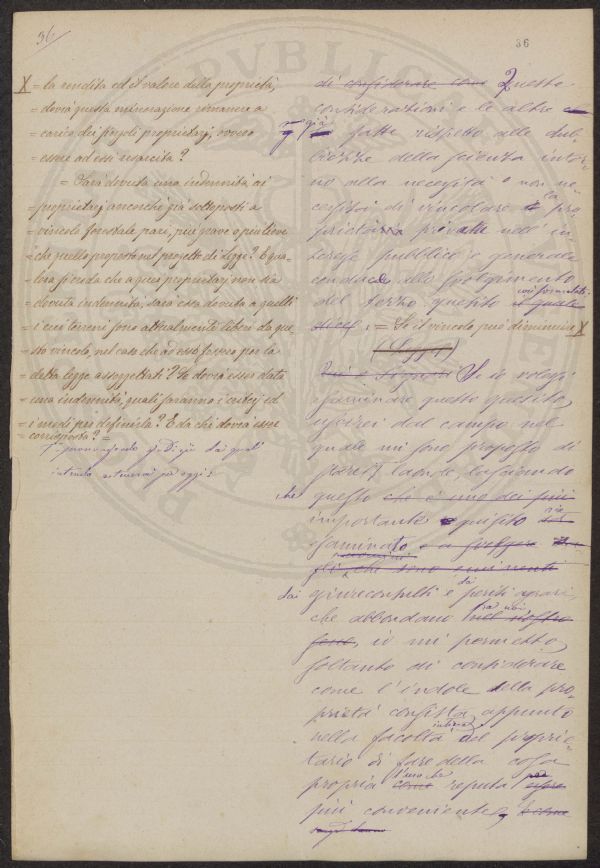 36
36
X = la rendita ed il valore della proprietà,
= dovrà questa minorazione rimanere a
= carico dei singoli proprietarj, ovvero
= essere ad essi risarcita?
= Sarà dovuta una indennità ai
= proprietarj ancorchè già sottoposti a
= vincolo forestale pari, più grave o più lieve
= che quello proposto nel progetto di Legge? E qua-
= lora si creda che a questi proprietarj non sia
= dovuta indennità, sarà essa dovuta a quelli
= i cui terreni sono attualmente liberi da que-
= sto vincolo, nel caso che ad esso fossero per la
= detta legge assoggettati? Se dovrà esser data
= una indennità, quali saranno i criterj ed
= i modi per definirla? E da chi dovrà essere
= corrisposta? =
intendo astenermi per oggi:
di considerare come Queste
considerazioni e le altre
già fatte rispetto alle dub-
biezze della scienza intor-
no alla necessità o non ne-
cessità di vincolare la pro-
prietà privata nell' in-
teresse pubblico e generale
conduce allo svolgimento
del terzo quesito così formulato
il quale
dice: = Se il vincolo può diminuire X
(Legge)
Qui o Signori Se io volessi
esaminare questo quesito,
uscirei dal campo nel
quale mi sono proposto di
starvi laonde, lasciando
che questo che è uno dei più
importante quesito sia
esaminato e a svolgere
gli che sono eminenti
dai giureconsulti e da periti agrari,
che abbondano fra noi, nel nostro
seno, io mi permetto
soltanto di considerare
come l'indole della pro-
prietà consista appunto
nella facoltà del proprie-
tario di fare della cosa
propria l'uso che come reputa
più conveniente, e come